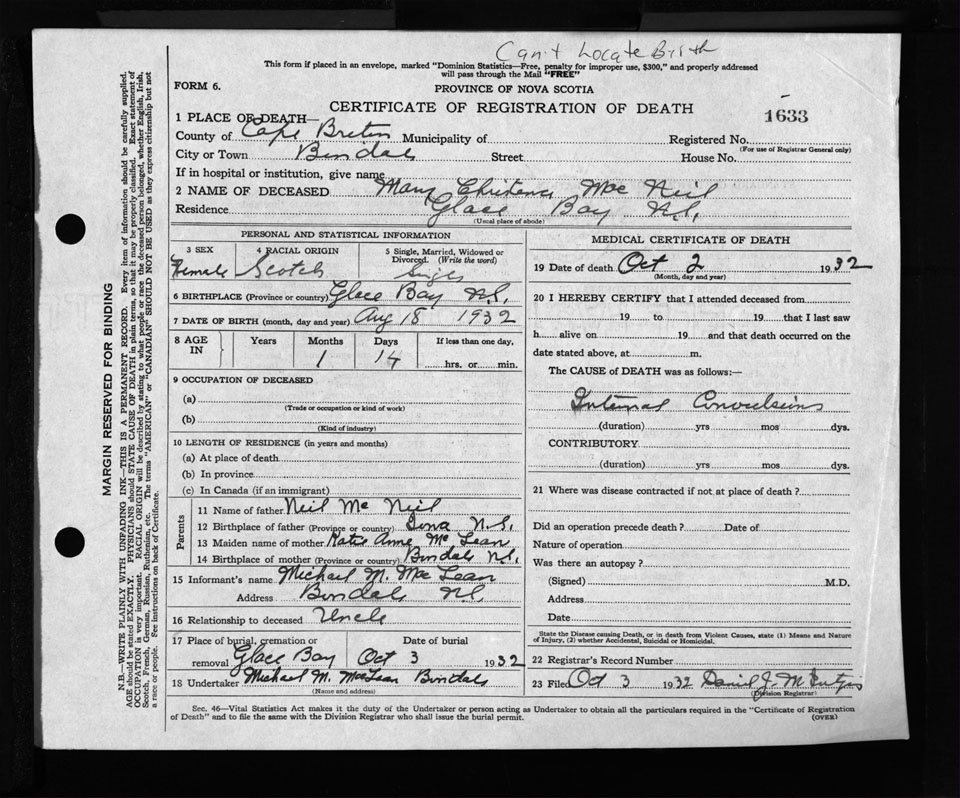 Can't Locate Birth
This form if placed in an envelope, marked "Dominion Statistics—Free, penalty for improper use, $300," and properly addressed
will pass through the Mail "FREE"
FORM 6.
PROVINCE OF NOVA SCOTIA
CERTIFICATE OF REGISTRATION OF DEATH
1633
1 PLACE OF DEATH—
County of Cape Breton Municipality of
Registered No.
(For use of Registrar General only)
City or Town Street House No.
If in hospital or institution, give name
2 NAME OF DECEASED Mary Mac Neil
Residence Glace Bay N.S.
(Usual place of abode)
PERSONAL AND STATISTICAL INFORMATION
3 SEX 4 RACIAL ORIGIN 5 Single, Married, Widowed or
Divorced. (Write the word)
Female Scotch Single
6 BIRTHPLACE (Province or country) Glace Bay N.S.
7 DATE OF BIRTH (month, day and year) Aug 18 1932
8 AGE IN Years Months Days If less than one day,
1 14 hrs. or min.
9 OCCUPATION OF DECEASED
(a)
(Trade or occupation or kind of work)
(b)
(Kind of industry)
10 LENGTH OF RESIDENCE (in years and months)
(a) At place of death
(b) In province
(c) In Canada (if an immigrant)
Parents
11 Name of father Neil Mc Neil
12 Birthplace of father (Province or country) Iona N.S.
13 Maiden name of mother Katie Anne Mc Lean
14 Birthplace of mother (Province or country) N.S.
15 Informant's name Michael M. Mac Lean
Address N.S
16 Relationship to deceased Uncle
17 Place of burial, cremation or Date of burial
removal Glace Bay Oct 3 1932
18 Undertaker Michael M. MacLean
(Name and address)
MEDICAL CERTIFICATE OF DEATH
19 Date of death Oct 2 1932
(Month, day and year)
20 I HEREBY CERTIFY that I attended deceased from
19 to 19 that I last saw
h alive on 19 and that death occurred on the
date stated above, at m.
The CAUSE of DEATH was as follows:—
Internal Convulsions
(duration) yrs mos dys.
CONTRIBUTORY
(duration) yrs mos dys.
21 Where was disease contracted if not at place of death?
Did an operation precede death? Date of
Nature of operation
Was there an autopsy?
(Signed) M.D.
Address
Date
State the Disease causing Death, or in death from Violent Causes, state (1) Means and Nature
of Injury, (2) whether Accidental, Suicidal or Homicidal.
22 Registrar's Record Number
23 Filed Oct 3 1932 Daniel J.
(Division Registrar)
Sec. 46—Vital Statistics Act makes it the duty of the Undertaker or person acting as Undertaker to obtain all the particulars required in the "Certificate of Registration
of Death" and to file the same with the Division Registrar who shall issue the burial permit.
(OVER)
MARGIN RESERVED FOR BINDING
N.B.—WRITE PLAINLY WITH UNFADING INK—THIS IS A PERMANENT RECORD. Every item of information should be carefully supplied.
AGE should be stated EXACTLY. PHYSICIANS should STATE CAUSE OF DEATH in plain terms, so that it may be properly classified. Exact statement of
OCCUPATION is very important. RACIAL ORIGIN will be described by stating to what people or race the deceased person belonged, whether English, Irish,
Scotch, French, German, Russian, Ruthenian, etc. The terms "AMERICAN" or "CANADIAN" SHOULD NOT BE USED as they express citizenship but not
a race or people. See instructions on back of Certificate.